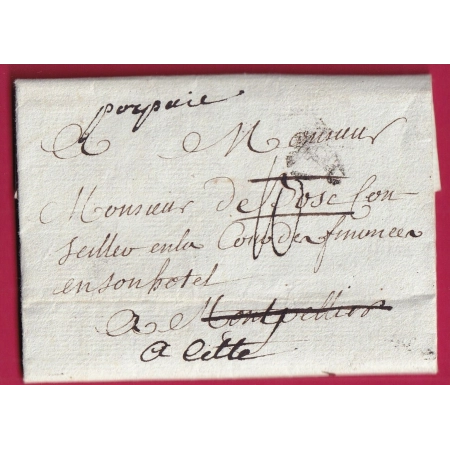 port paié
A Monsieur
Monsieur de Bosc Con
seiller en la Cour des finances
en son hotel
A Montpellier
A Cette